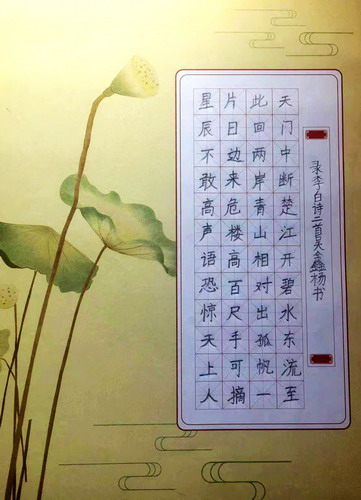 录李白诗二首吴鑫杨书
天门中断楚江开碧水东流至
此回两岸青山相对出孤帆一
片日边来危楼高百尺手可摘
星辰不敢高声语恐惊天上人